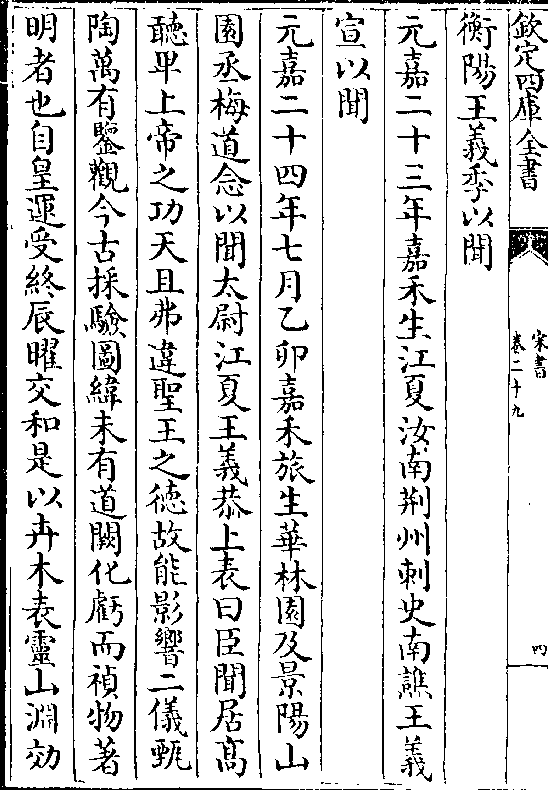 欽定四庫全書
宋書
卷二十九
四
衡陽王義季以聞
元嘉二十三年嘉禾生江夏汝南荆州刺史南譙王義
宣以聞
元嘉二十四年七月乙卯嘉禾旅生華林園及景陽山
園丞梅道念以聞太尉江夏王義恭上表曰臣聞居髙
聽卑上帝之功天且弗違聖王之徳故能影響二儀甄
陶萬有鑒觀今古採驗圖緯未有道闕化虧而禎物著
明者也自皇運受終辰曜交和是以卉木表靈山淵効